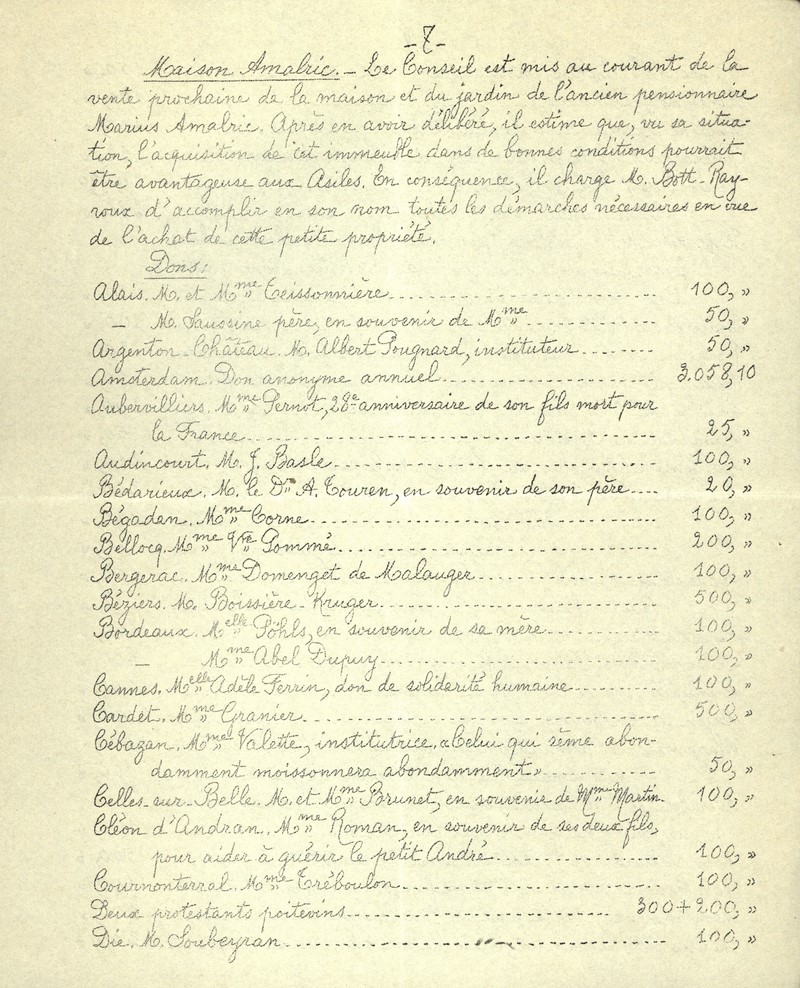 -7-
Maison Amalric. - Le Conseil est mis au courant de la
vente prochaine de la maison et du jardin de l'ancien pensionnaire
Marius Amalric. Après en avoir délibéré, il estime que, vu sa situa-
tion, l'acquisition de cet immeuble dans de bonnes conditions pourrait
être avantageuse aux Asiles. En conséquence, il charge M. Bott-Ray-
roux d'accomplir en son nom toutes les démarches nécessaires en vue
de l'achat de cette petite propriété.
Dons:
Alais. M. et Mme Teissonnière........ 100, »
— M. Saussine père, en souvenir de Mme........ 50, »
Argenton-Château. M. Albert Pougnard, instituteur........ 50, »
Amsterdam. Don anonyme annuel........ 3.058,10
Aubervilliers. Mme Pernot, 28e anniversaire de son fils mort pour
la France........ 25, »
Audincourt. M. J. Basle........ 100, »
Bédarieux. M. le Dr A. Touren, en souvenir de son père.... 20, »
Bégadan. Mme Corne........ 100, »
Bellocq. Mme Vve Pommé........ 200, »
Bergerac. Mme Domenget de Malauger........ 100, »
Béziers. M. Boissière-Kruger........ 500, »
Bordeaux. Melle Pöhls, en souvenir de sa mère........ 100, »
— Mme Abel Dupuy........ 100, »
Cannes. Melle Adèle Perrin, don de solidarité humaine........ 100, »
Cardet. Mme Granier........ 500, »
Cébazan. Mmel Valette, institutrice. « Celui qui sème abon-
damment moissonnera abondamment »........ 50, »
Celles-sur-Belle. M. et Mme Brunet, en souvenir de Mme Martin. 100, »
Cléon d'Andran. Mme Roman, en souvenir de ses deux fils,
pour aider à guérir le petit André........ 100, »
Cournonterral. Mme Tréboulon........ 100, »
Deux protestants poitevins........ 300+200, »
Die. M. Soubeyran........ 100, »